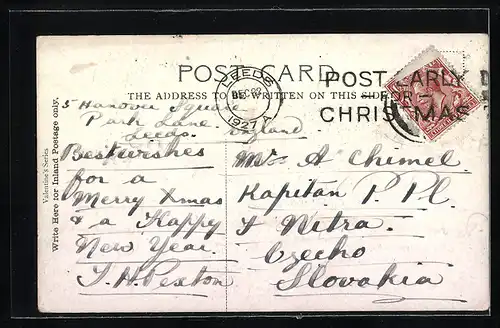 POST CARD
THE ADDRESS TO BE WRITTEN ON THIS SIDE
LEEDS
DEC 22
1927
POST EARLY
FOR
CHRISTMAS
Valentine's Series
Write Here for Inland Postage only.
5 Hanover Square
Park Lane
Leeds. England
Best wishes
for a
Merry Xmas
& a Happy
New Year.
T. H. Pexton
Mr. A Chimel
Kapitan P. Pl.
Nitra.
Czecho
Slovakia